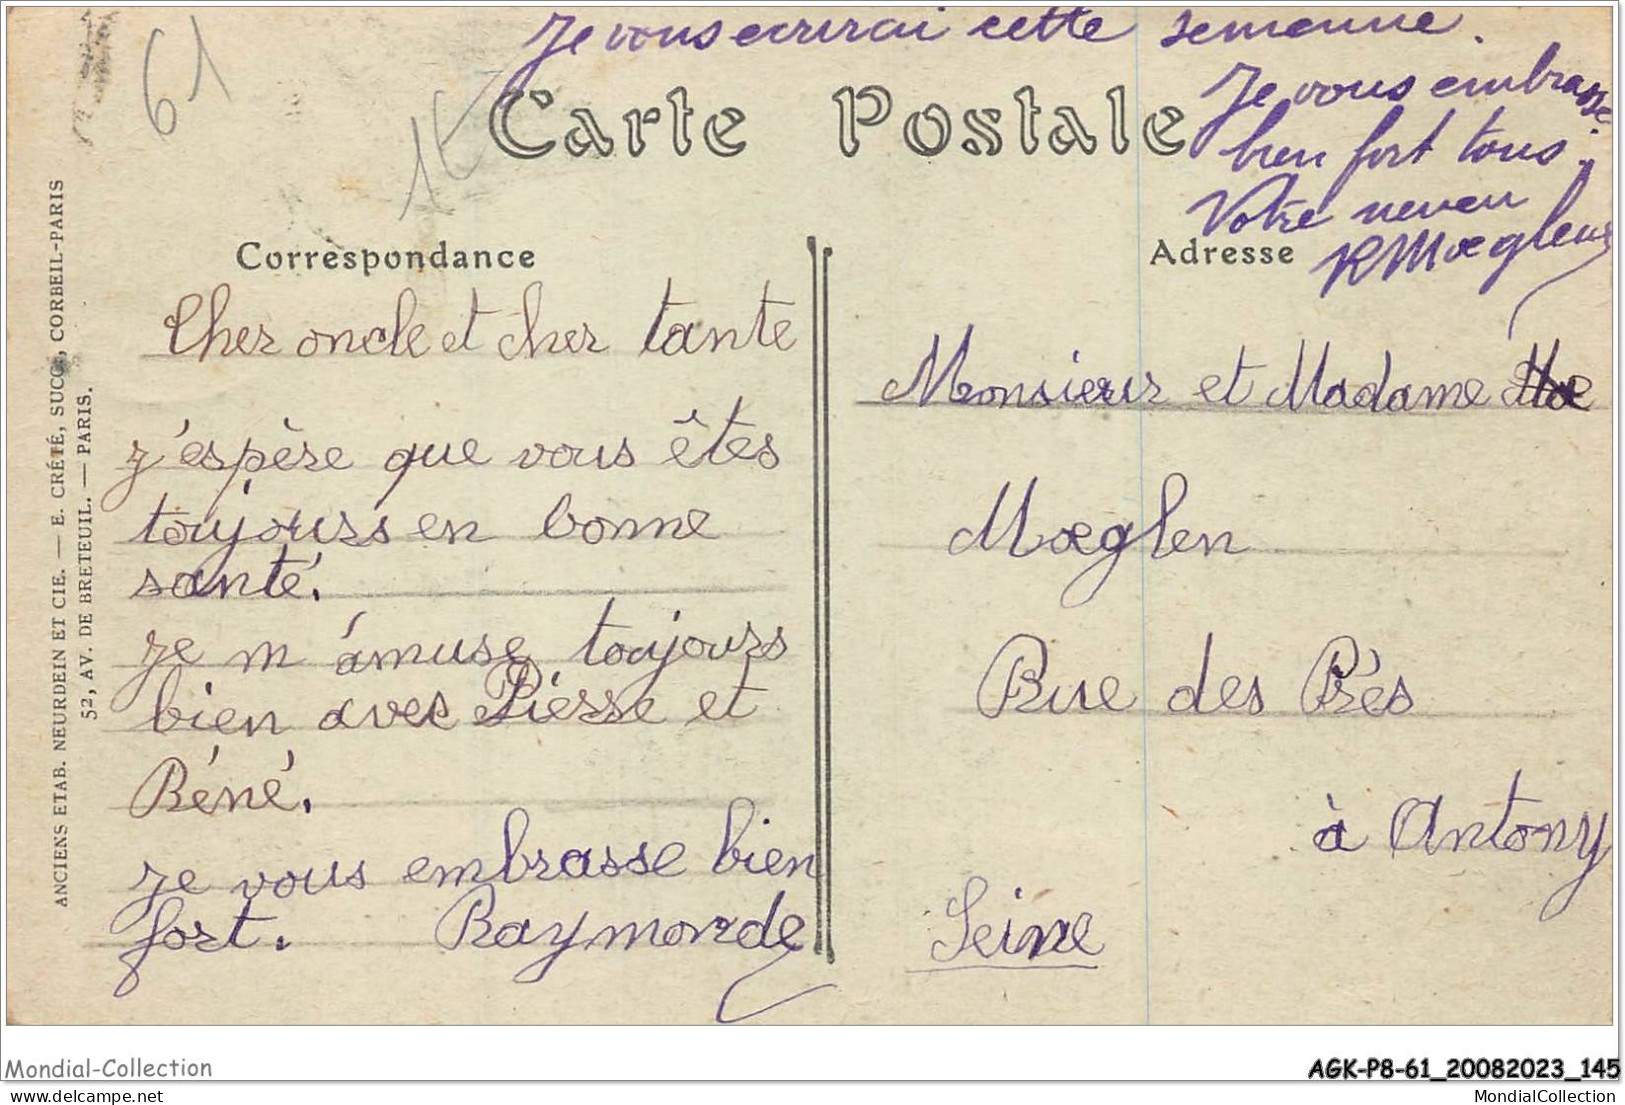 61
Je vous ecrirai cette semaine.
Je vous embrasse
bien fort tous.
Votre neveu
R Mœglen
Carte Postale
Correspondance
Adresse
Cher oncle et cher tante
j'espère que vous êtes
toujours en bonne
santé.
Je m'amuse toujours
bien avec Pierre et
Réné.
Je vous embrasse bien
fort. Raymonde
Monsieur et Madame
Mœglen
Rue des Prés
à Antony
Seine
ANCIENS ETAB. NEURDEIN ET CIE. — E. CRÉTÉ, SUCC., CORBEIL-PARIS
52, AV. DE BRETEUIL. — PARIS.
Mondial-Collection
AGK-P8-61_20082023_145
www.delcampe.net
MondialCollection